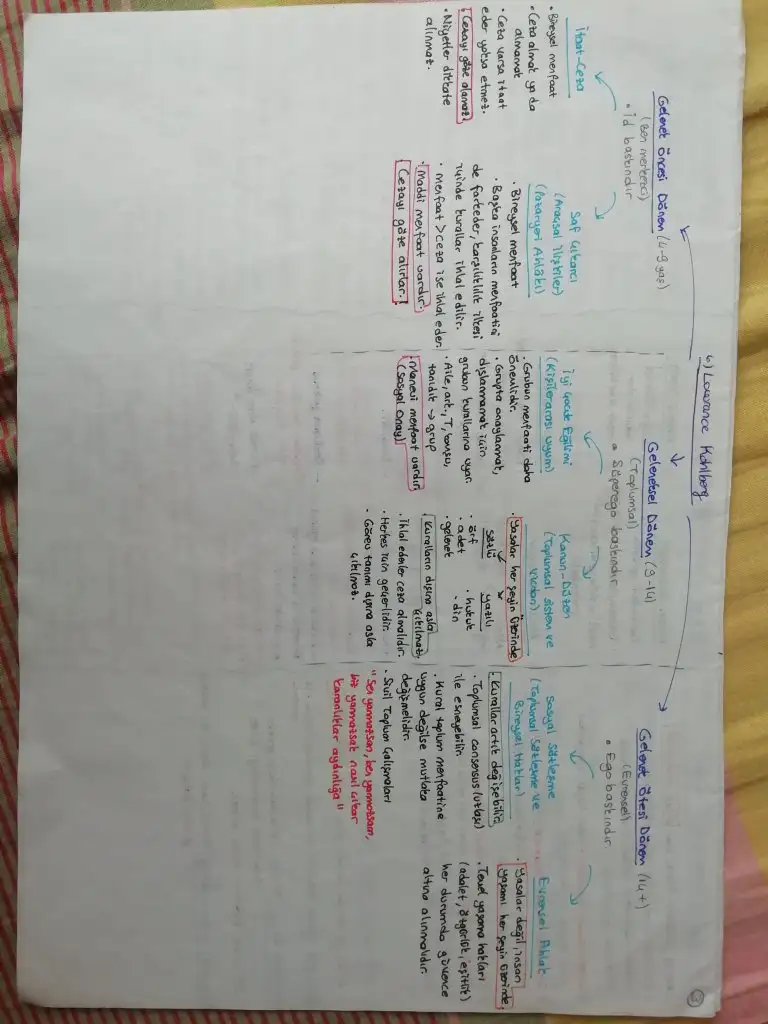 6) Lawrance Kohlberg
3
Gelenek Öncesi Dönem (4-9 yaş)
(Ben merkezci)
• İd baskındır
İtaat-Ceza
• Bireysel menfaat
• Ceza almak ya da
almamak
• Ceza varsa itaat
eder yoksa etmez.
• Cezayı göze alamaz!
• Niyetler dikkate
alınmaz.
Saf Çıkarcı
(Araçsal İlişkiler)
(Pazaryeri Ahlâkı)
• Bireysel menfaat
• Başka insanların menfaatini
de farkeder, karşılıklılık ilkesi
içinde kurallar ihlal edilir.
• menfaat > ceza ise ihlal eder.
• Maddi menfaat vardır.
Cezayı göze alırlar.!
Geleneksel Dönem (9-14)
(Toplumsal)
• Süperego baskındır
İyi Çocuk Eğilimi
(Kişilerarası uyum)
• Grubun menfaati daha
önemlidir.
• Grupta onaylanmak,
dışlanmamak için
grubun kurallarına uyar.
• Aile, ark., T, komşu,
tanıdık → grup
• Manevi menfaat vardır.
(Sosyal Onay)
Kanun-Düzen
(Toplumsal sistem ve
vicdan)
• Yasalar her şeyin üzerinde
sözlü yazılı
• örf • hukuk
• adet • din
• gelenek
Kuralların dışına asla
çıkılmaz!
• İhlal edenler ceza almalıdır.
• Herkes için geçerlidir.
• Görev tanımı dışına asla
çıkılmaz.
Gelenek Ötesi Dönem (14+)
(Evrensel)
• Ego baskındır.
Sosyal Sözleşme
(Toplumsal Sözleşme ve
Bireysel Haklar)
Kurallar artık değişebilir.
• Toplumsal consensus (uzlaşı)
ile esneyebilir.
• Kural toplum menfaatine
uygun değilse mutlaka
değişmelidir.
• Sivil Toplum Çalışmaları
"Sen yanmazsan, ben yanmazsam,
biz yanmazsak nasıl çıkar
karanlıklar aydınlığa"
Evrensel Ahlak
• Yasalar değil, insan
yaşamı her şeyin üzerinde,
• Temel yaşama hakları
(adalet, özgürlük, eşitlik)
her durumda güvence
altına alınmalıdır.